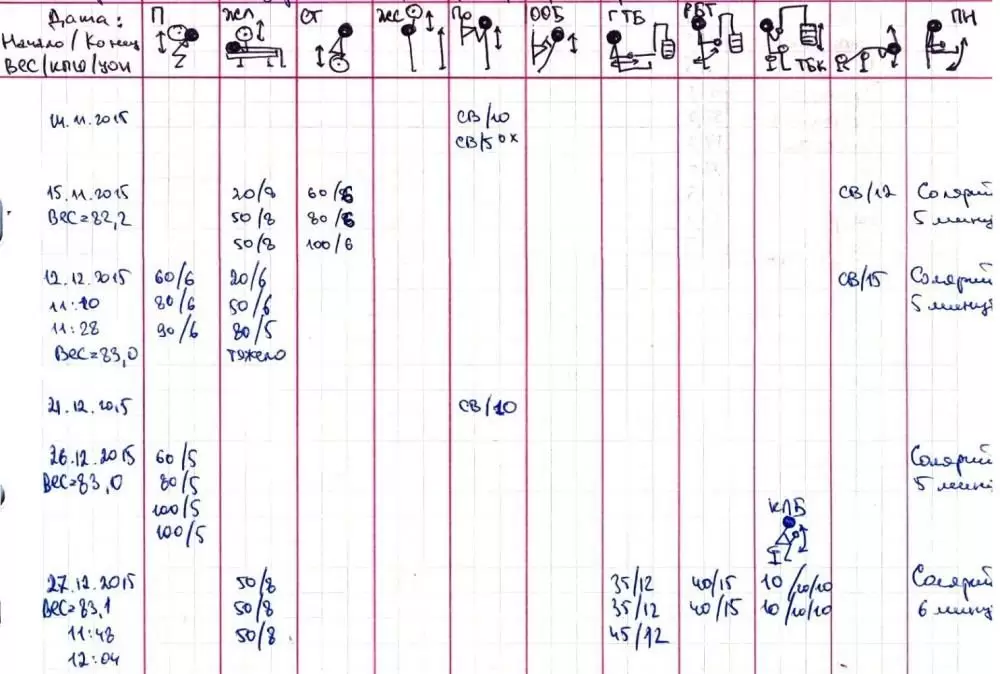 Дата:
Начало / Конец
ВЕС/КПШ/УОИ
П
ЖЛ
СТ
ЖС
ПО
ООБ
ГТБ
РБТ
ТБК
ПН
14.11.2015
СВ/10
СВ/5
15.11.2015 20/8 60/6 СВ/12 Солярий
ВЕС=82,2 50/8 80/6 5 минут
50/8 100/6
12.12.2015 60/6 20/6 СВ/15 Солярий
11:20 80/6 50/6 5 минут
11:28 90/6 80/5
ВЕС=83,0 тяжело
21.12.2015 СВ/10
26.12.2015 60/5 Солярий
ВЕС=83,0 80/5 5 минут
100/5
100/5
КЛБ
27.12.2015 50/8 35/12 40/15 10/10/10 Солярий
ВЕС=83,1 50/8 35/12 40/15 10/10/10 6 минут
11:48 50/8 45/12
12:04